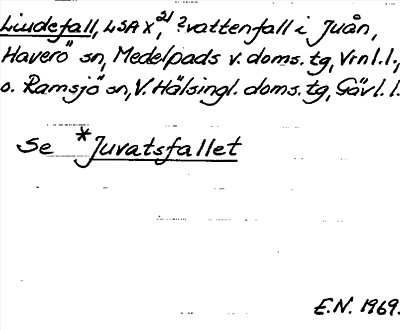 Liudefall, LSA X, 21 ? vattenfall i Juån,
Haverö sn, Medelpads v. doms. tg, Vrnl. l.,
o. Ramsjö sn, V. Hälsingl. doms. tg, Gävl. l.
Se *Juvatsfallet
E.N. 1969.